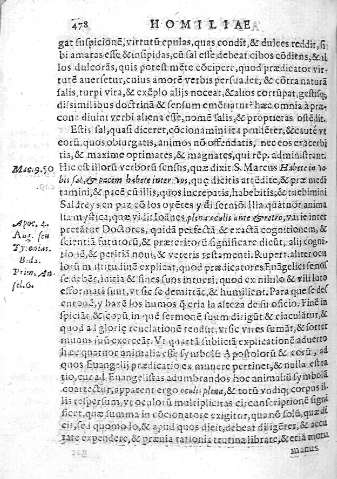 478 HOMILIAE
gat suspicionē, virtutū epulas, quas condit, & dulces reddit, si
bi amaras esse & insipidas, cū sal esse debeat cibos cōditus, & il
los dulcorās, quis potest mēte cōcipere, quod prædicator virtu
tē auersetur, cuius amorē verbis persuadet, & cōtra naturā
salis, turpi vita, & exēplo alijs noceat, & alios cortūpat, gestisq;
dissimilibus doctrinā & sensum emētiatur? hæc omnia à præ-
cone diuini verbi aliena esse, nomē salis, & proprietas ostēdit.
Estis sal, quasi diceret, cōcionamini ita
quoris, quos obiurgatis, animos nō offendatis, nec eos exacerbe
tis, & maxime optimates, & magnates, qui rēp. administrant.
Mac. 9. 50 Hic est illorū verborū sensus, quæ dixit S. Marcus Habete in vo
bis sal, & pacem habete inter vos, quæ dicitis attēdite, & præmedi
tamini, & pacē cū illis, quos increpatis, habebitis, & tuebimini
Sal dreys en paz cō los oyētes y di sermō Illa quatuor anima
Apoc. 4. lia mystica, quæ vidit Ioānes, plena oculis ante & retrò, varijs inter
Aug. seu pretātur Doctores, quidā perfectā, & exactā cognitionem, &
Tyconius. scientiā futurorū, & præteritorū significare dicūt, alij cognitio
Beda. nē, & peritiā noui, & veteris testamenti. Rupert. aliter ocu
Prim. An lorū multitudinē explicat, quod prædicatores Euāgelici sensi
sel. 6. se debēt, initia & fines suos intueri, quod ex nihilo & vili luto
essormati sunt, vt sic se demittāt, & humilient. Para que se des
entonē, y baxē los humos q̄ cria la alteza de su oficio. Finē in
spiciāt, & scopū in quē sermonē suum dirigūt & eiaculātur, &
quod ad glorię reuelationē tendūt, vt sic vires sumāt, & fortes
munus suū exerceāt. Vt quartā subliciā explicationē aduerto
hæc quatuor animalia esse symbolū Apostolorū & eorū, ad
quos Euangelij prædicatio ex munere pertinet, & nulla est ra
tio, cur ad Euangelistas adumbrandos hoc animaliū symbolū
coarctetur, apparent ergo oculis plena, & totū vndiq; corpus il-
lis respersum, vt oculorū multiplicitas circūscriptionē signifi
cet, quæ summa in cōcionatore exigitur, quā nō solū, quæ di
cēdi sunt, & apud quos dicit, debeat diligēter, & accu
rate expendere, & præuia rationis trutina librare, & etiā motū
manus